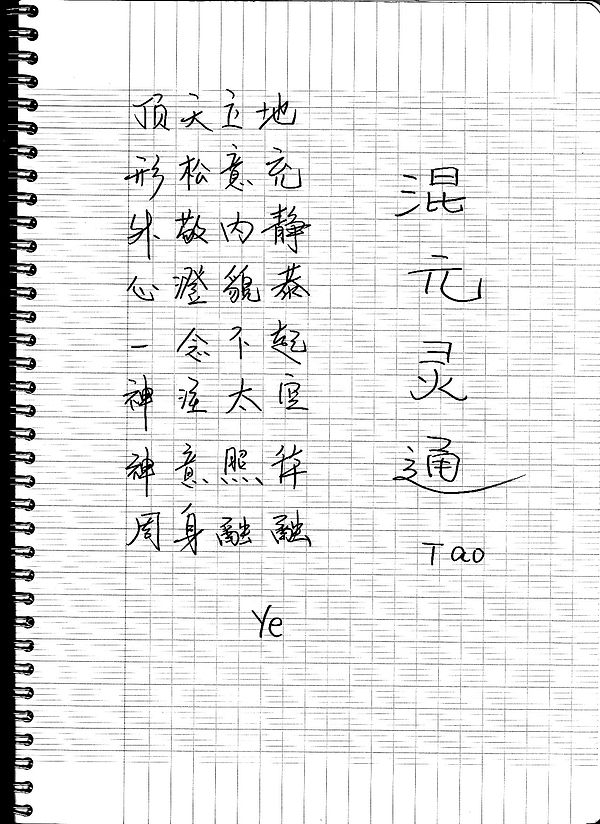 顶天立地
形松意充
外敬内静
心澄貌恭
一念不起
神注太空
神意照体
周身融融
Ye
混
元
灵
通
Tao